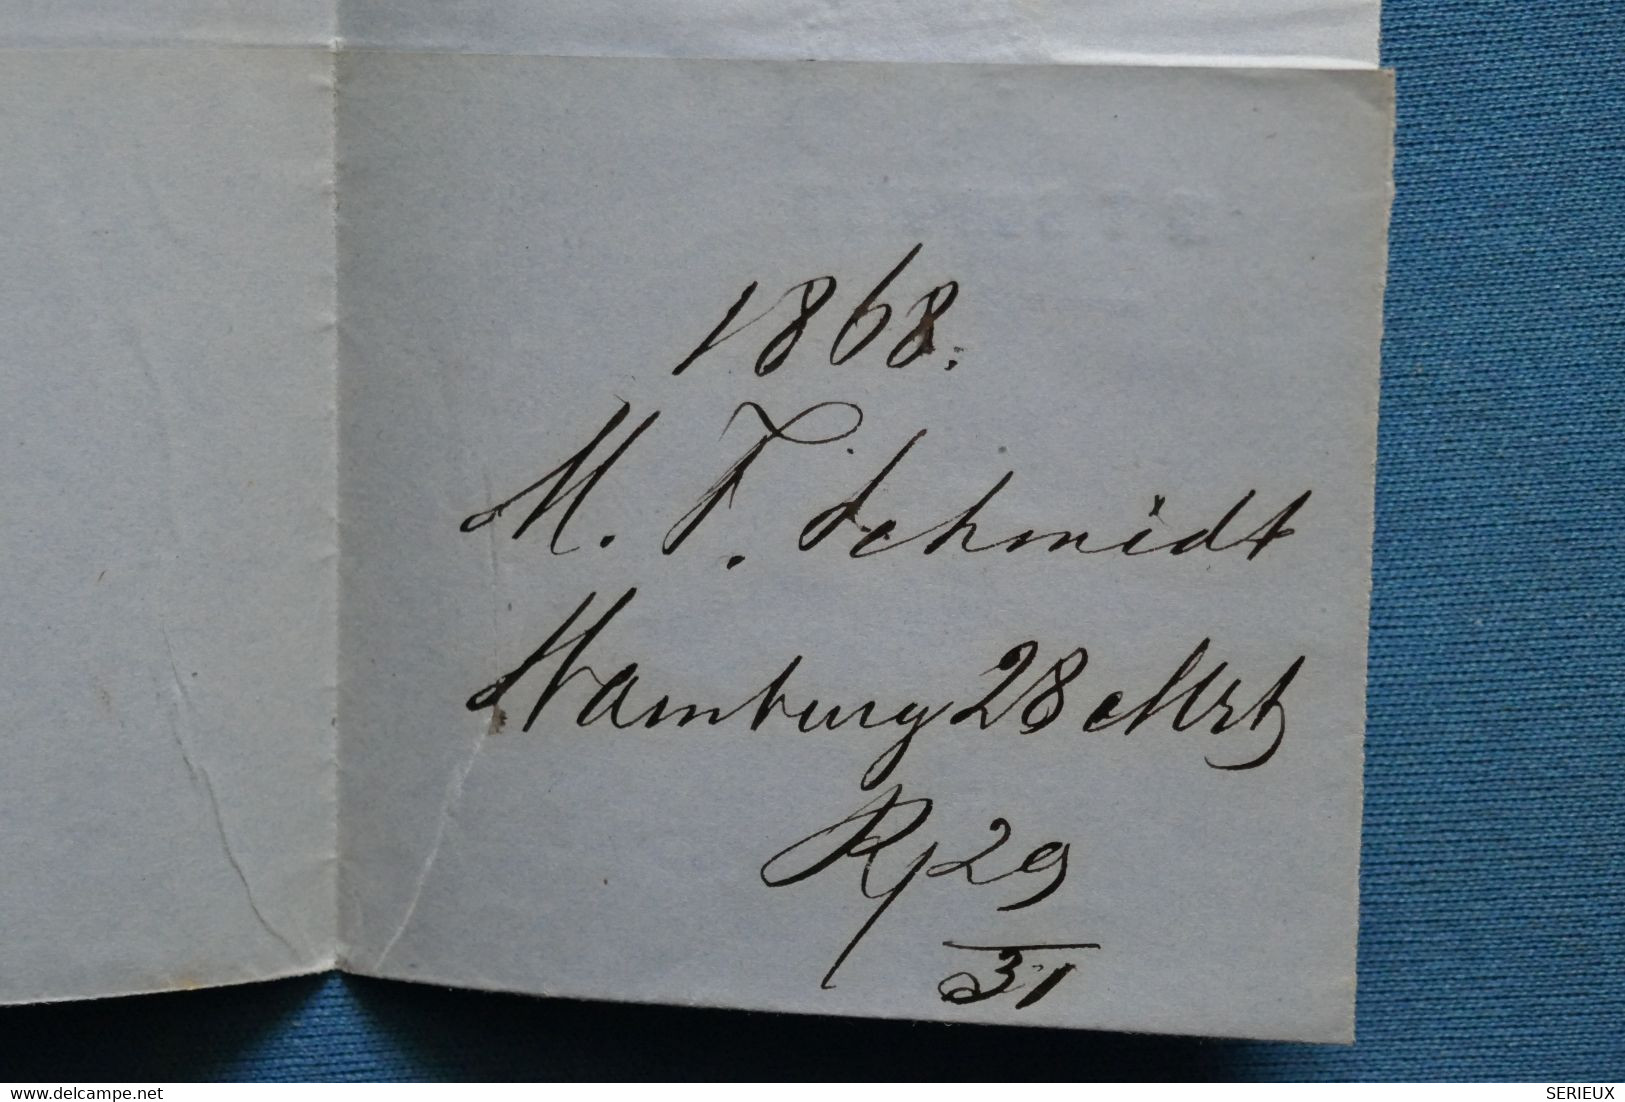 1868.
M. F. Schmidt
Hamburg 28 Mrtz
Rp 29
31
delcampe.net
SERIEUX